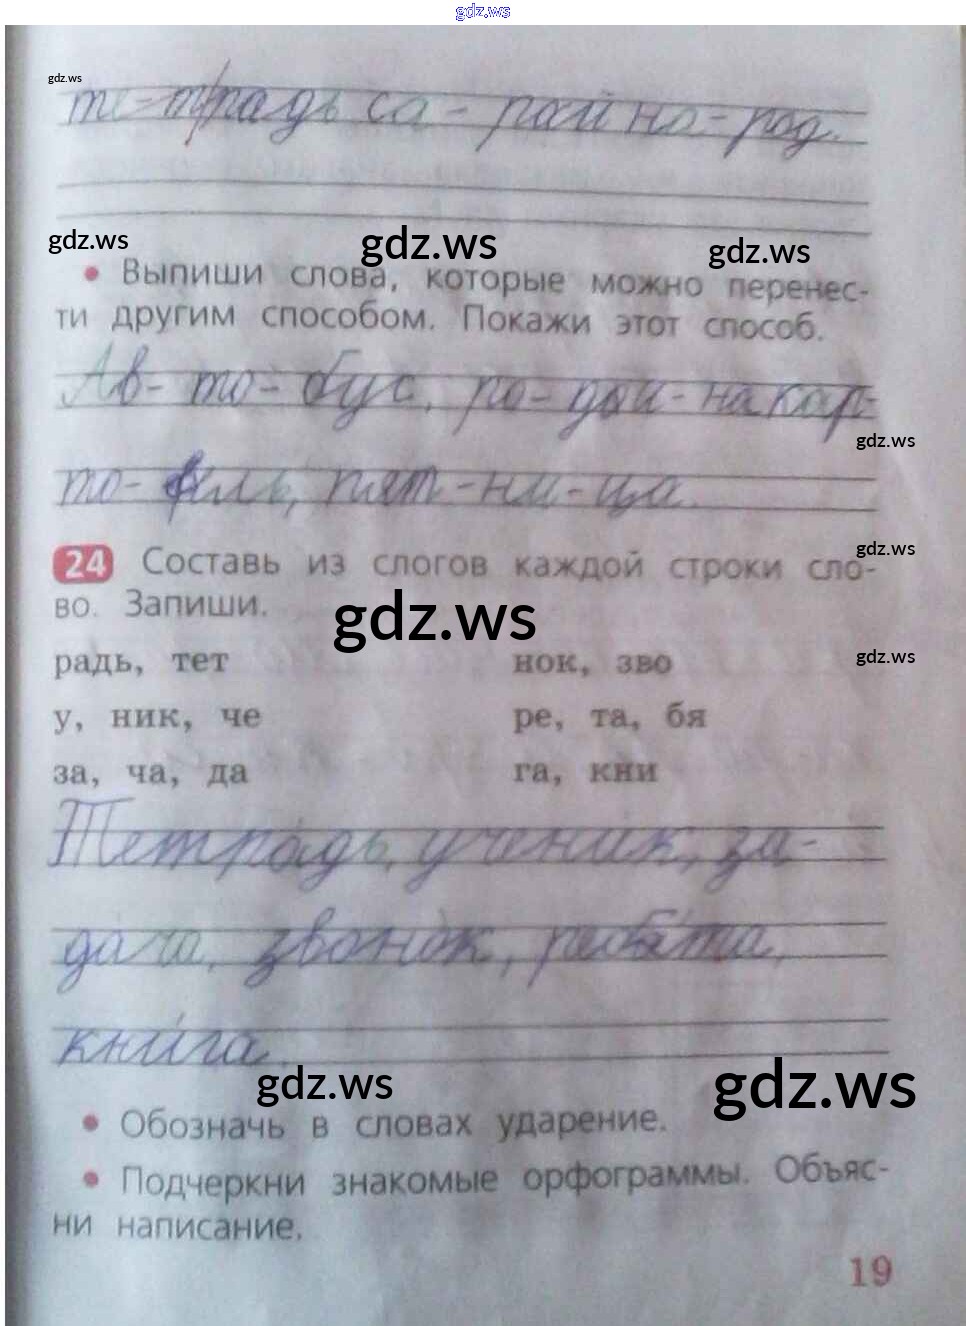 gdz.ws
gdz.ws
те-традь са - рай на - род.
gdz.ws gdz.ws gdz.ws
• Выпиши слова, которые можно перенес-
ти другим способом. Покажи этот способ.
Ав- то- бус, ро- дой - на кар-
gdz.ws
то- фель, пят - ни - ца.
gdz.ws
24 Составь из слогов каждой строки сло-
во. Запиши.
gdz.ws
радь, тет нок, зво
gdz.ws
у, ник, че ре, та, бя
за, ча, да га, кни
Тетра́дь, учени́к, за-
да́ча, звоно́к, ребя́та,
кни́га.
gdz.ws gdz.ws
• Обозначь в словах ударение.
• Подчеркни знакомые орфограммы. Объяс-
ни написание.
19